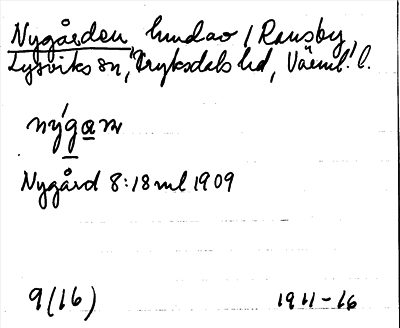 Nygården, hmdao / Ransby,
Lysviks sn, Fryksdals hd, Värml. l.
nýgan
Nygård 8:18 ml 1909
9(16) 1911-16